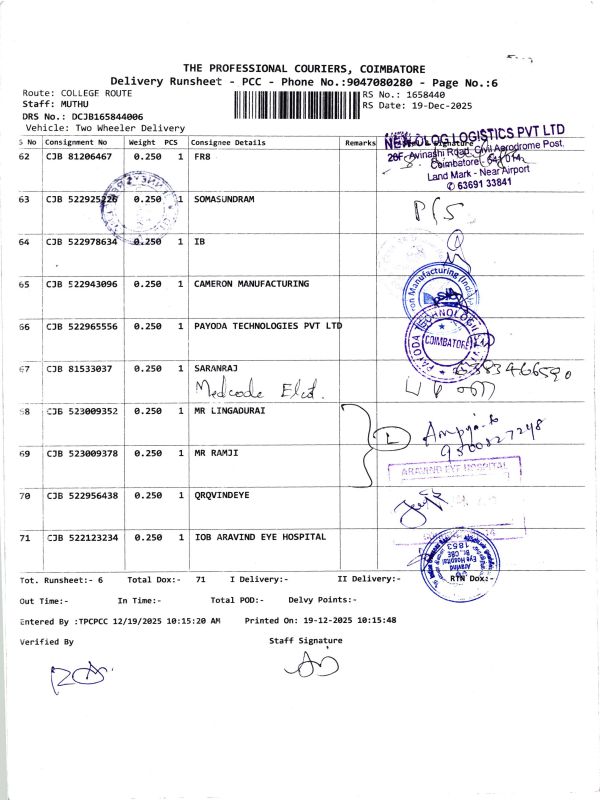 THE PROFESSIONAL COURIERS, COIMBATORE
Delivery Runsheet - PCC - Phone No.:9047080280 - Page No.:6
Route: COLLEGE ROUTE
RS No.: 1658440
Staff: MUTHU
RS Date: 19-Dec-2025
DRS No.: DCJB165844006
Vehicle: Two Wheeler Delivery
S No Consignment No Weight PCS Consignee Details Remarks
NEWOLOG LOGISTICS PVT LTD
Avinashi Road, Civil Aerodrome Post,
Coimbatore - 641014
Land Mark - Near Airport
✆ 63691 33841
62 CJB 81206467 0.250 1 FR8
63 CJB 522925226 0.250 1 SOMASUNDRAM
64 CJB 522978634 0.250 1 IB
65 CJB 522943096 0.250 1 CAMERON MANUFACTURING
66 CJB 522965556 0.250 1 PAYODA TECHNOLOGIES PVT LTD
PAYODA TECHNOLOGIES
COIMBATORE
67 CJB 81533037 0.250 1 SARANRAJ
Medcode
68 CJB 523009352 0.250 1 MR LINGADURAI
L
9500827248
69 CJB 523009378 0.250 1 MR RAMJI
ARAVIND EYE HOSPITAL
70 CJB 522956438 0.250 1 QRQVINDEYE
71 CJB 522123234 0.250 1 IOB ARAVIND EYE HOSPITAL
Aravind
Eye Hospital
Br. CBE
1853
Tot. Runsheet:- 6 Total Dox:- 71 I Delivery:- II Delivery:- RTN Dox:-
Out Time:- In Time:- Total POD:- Delvy Points:-
Entered By :TPCPCC 12/19/2025 10:15:20 AM Printed On: 19-12-2025 10:15:48
Verified By Staff Signature